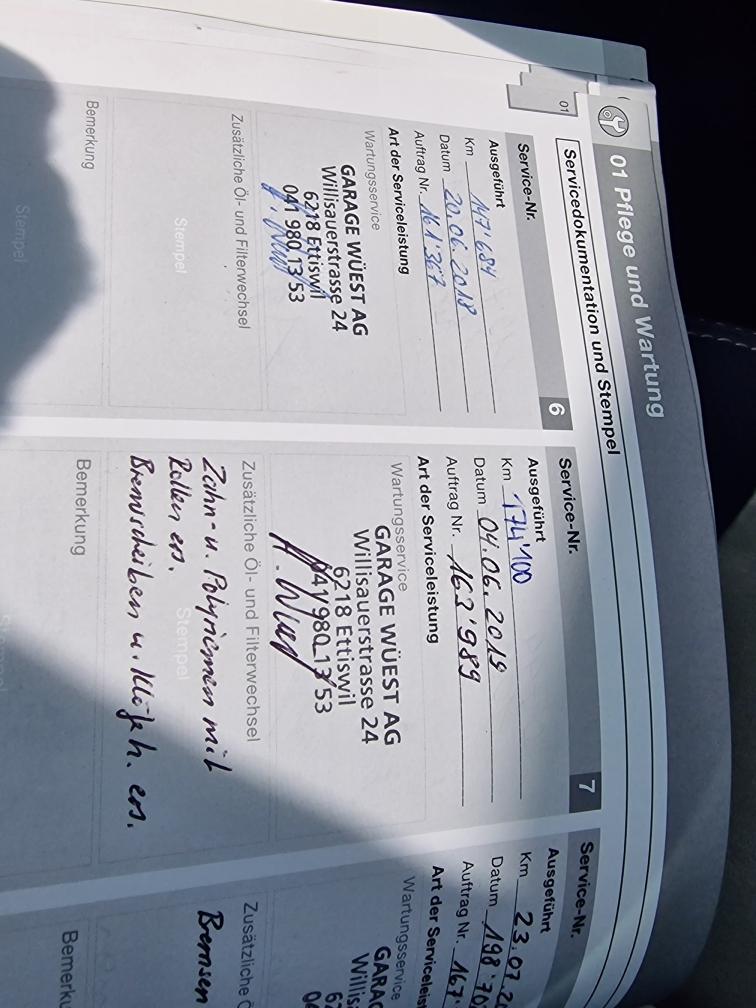 01 Pflege und Wartung
Servicedokumentation und Stempel
01
Service-Nr. 6
Ausgeführt
Km 147'684
Datum 20.06.2018
Auftrag Nr. 161'367
Art der Serviceleistung
Wartungsservice
GARAGE WÜEST AG
Willisauerstrasse 24
6218 Ettiswil
041 980 13 53
Zusätzliche Öl- und Filterwechsel
Stempel
Bemerkung
Stempel
Service-Nr. 7
Ausgeführt
Km 174'100
Datum 04.06.2019
Auftrag Nr. 163'989
Art der Serviceleistung
Wartungsservice
GARAGE WÜEST AG
Willisauerstrasse 24
6218 Ettiswil
041 980 13 53
Zusätzliche Öl- und Filterwechsel
Zahn- u. Polyriemen mit
Rollen ers.
Stempel
Bremsscheiben u. Klötze h. ers.
Bemerkung
Service-Nr.
Ausgeführt
Km 23.07.
Datum 198'70
Auftrag Nr. 167
Art der Serviceleis
Wartungsservice
GARA
Willis
62
04
Zusätzliche Ö
Bremsen
Bemerku